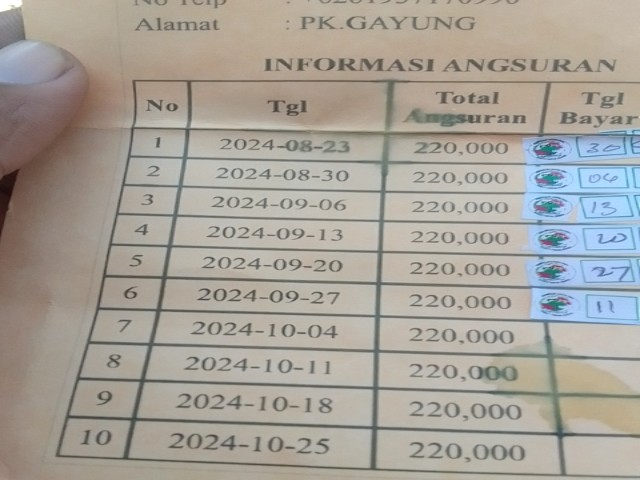 Alamat : PK.GAYUNG
INFORMASI ANGSURAN
No Tgl Total Angsuran Tgl Bayar
1 2024-08-23 220,000 30
2 2024-08-30 220,000 06
3 2024-09-06 220,000 13
4 2024-09-13 220,000 20
5 2024-09-20 220,000 27
6 2024-09-27 220,000 11
7 2024-10-04 220,000
8 2024-10-11 220,000
9 2024-10-18 220,000
10 2024-10-25 220,000